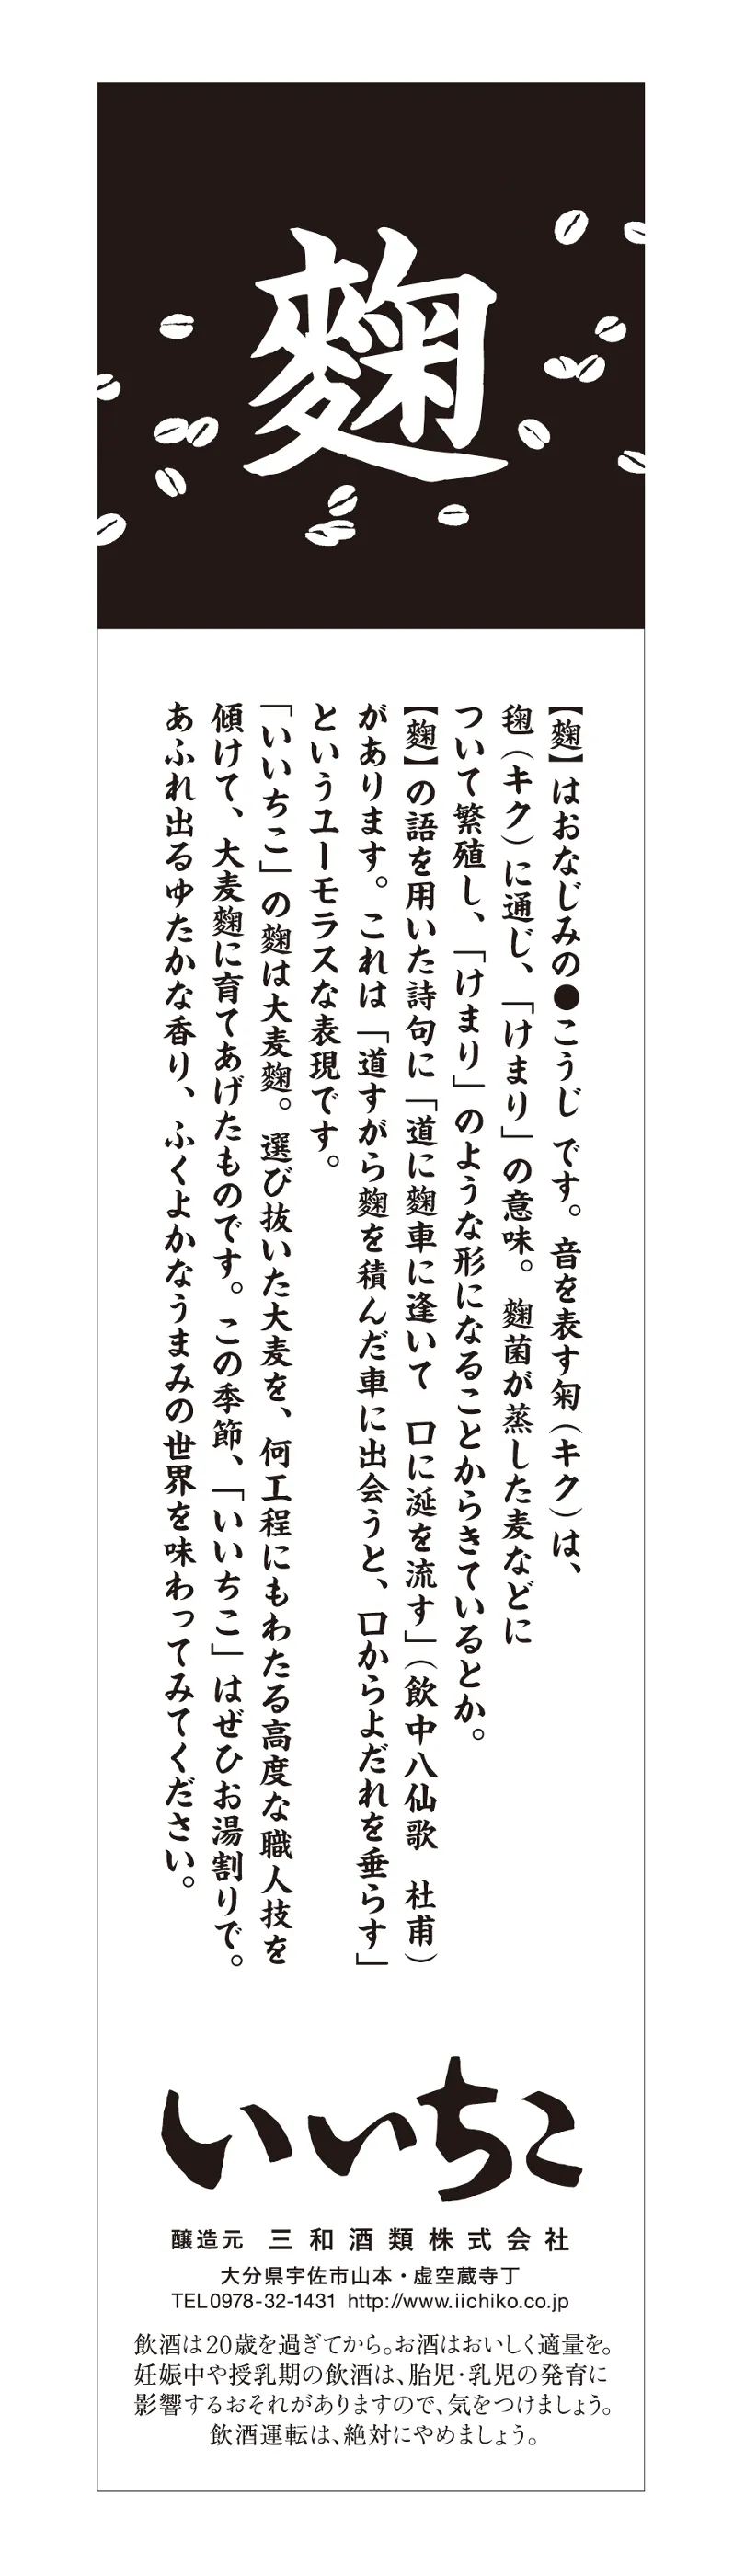 麴
【麴】はおなじみの●こうじ です。音を表す匊（キク）は、
毱（キク）に通じ、「けまり」の意味。麴菌が蒸した麦などに
ついて繁殖し、「けまり」のような形になることからきているとか。
【麴】の語を用いた詩句に「道に麴車に逢いて　口に涎を流す」（飲中八仙歌　杜甫）
があります。これは「道すがら麴を積んだ車に出会うと、口からよだれを垂らす」
というユーモラスな表現です。
「いいちこ」の麴は大麦麴。選び抜いた大麦を、何工程にもわたる高度な職人技を
傾けて、大麦麴に育てあげたものです。この季節、「いいちこ」はぜひお湯割りで。
あふれ出るゆたかな香り、ふくよかなうまみの世界を味わってみてください。
いいちこ
醸造元　三和酒類株式会社
大分県宇佐市山本・虚空蔵寺丁
TEL0978-32-1431 http://www.iichiko.co.jp
飲酒は20歳を過ぎてから。お酒はおいしく適量を。
妊娠中や授乳期の飲酒は、胎児・乳児の発育に
影響するおそれがありますので、気をつけましょう。
飲酒運転は、絶対にやめましょう。